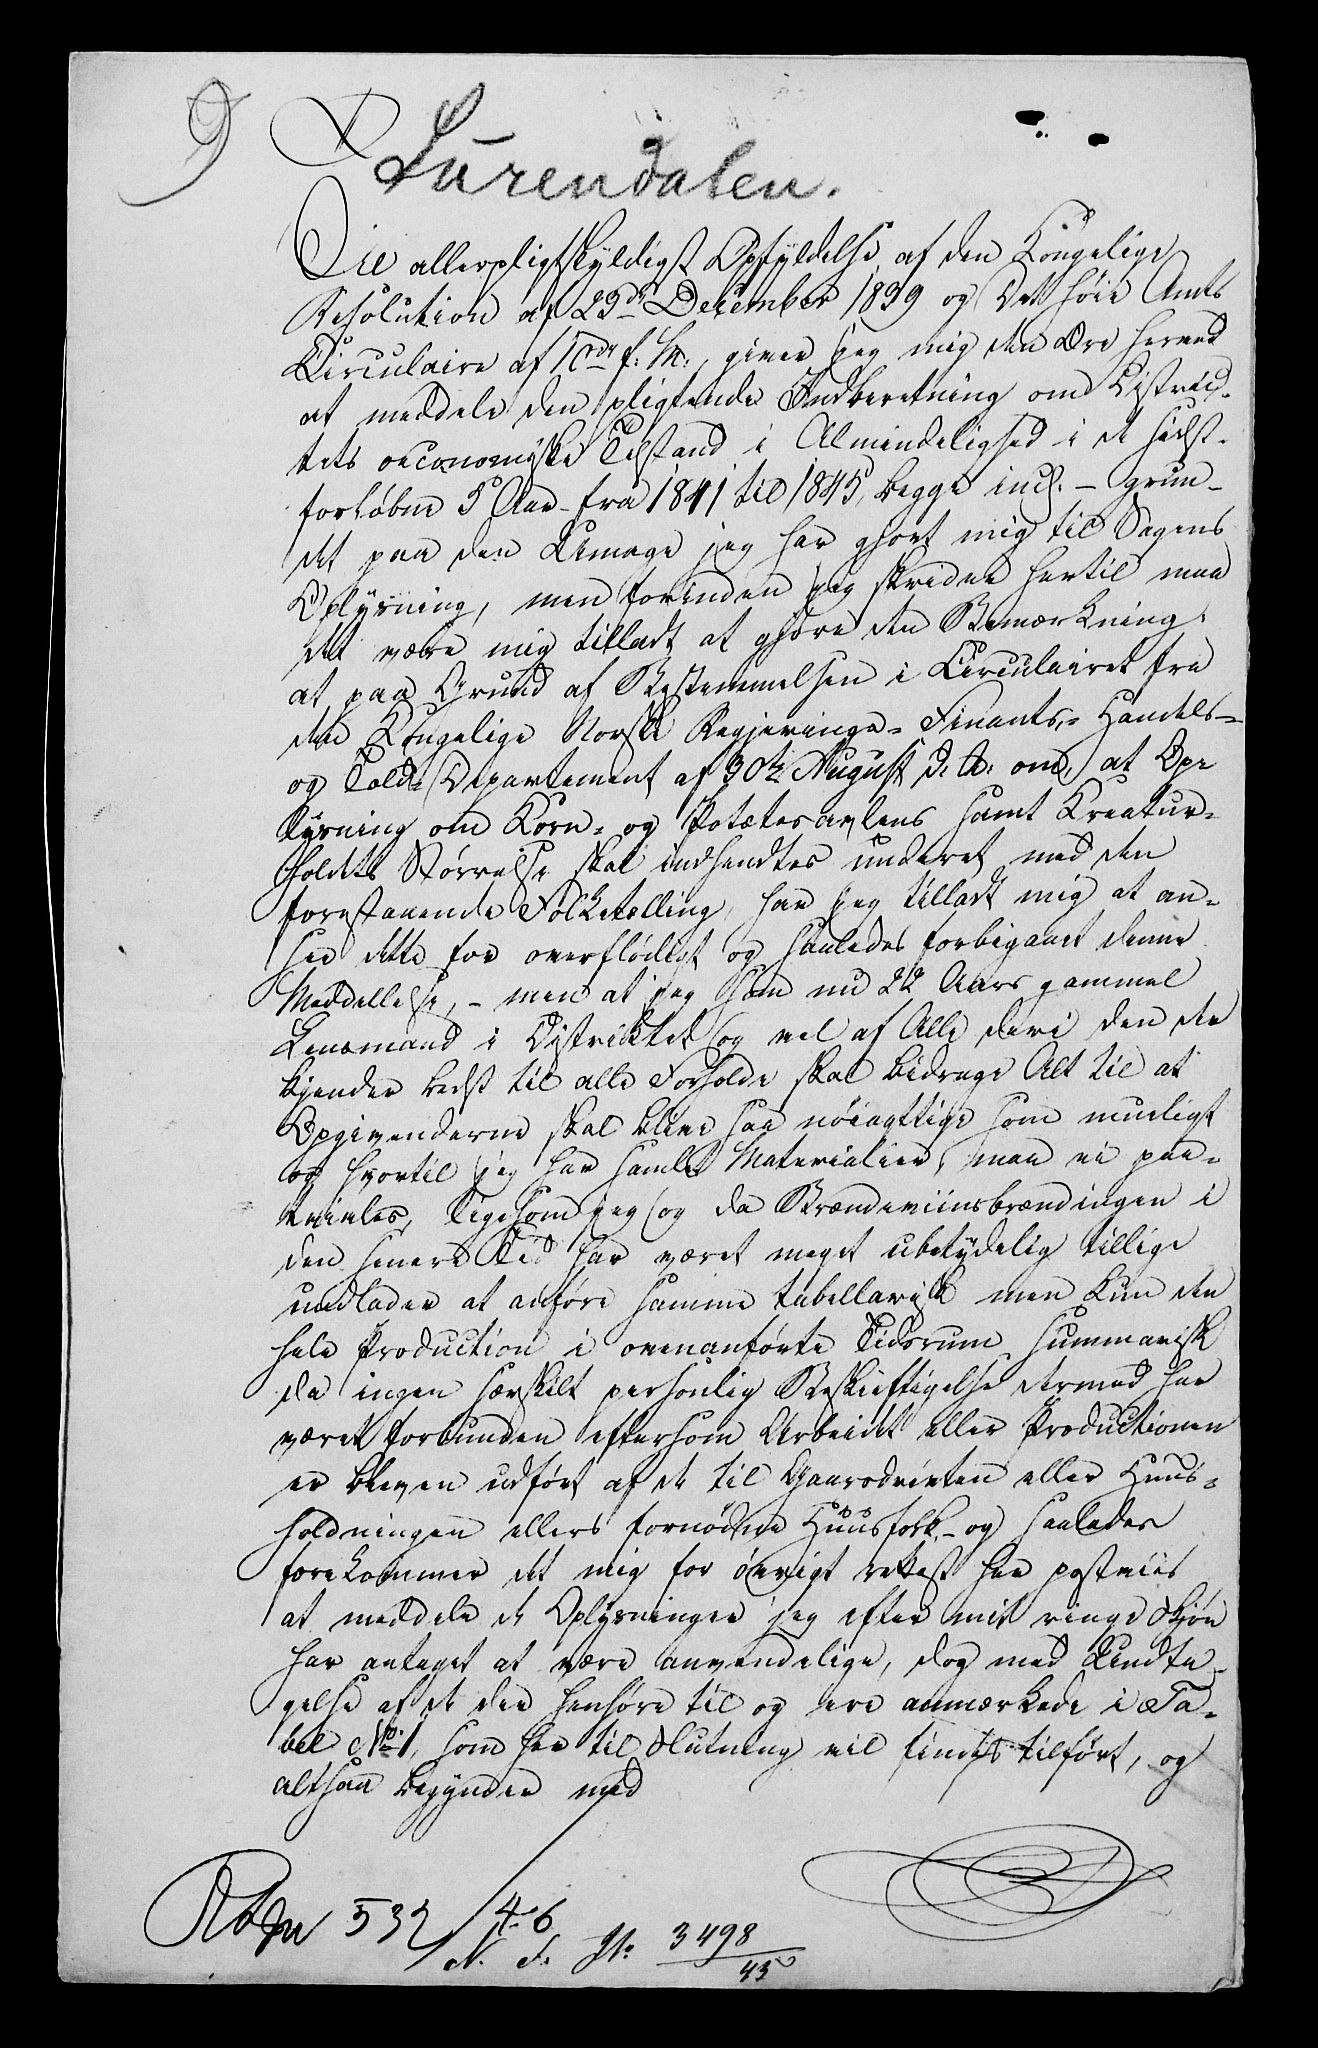 9
Surendalen.
Til allerpligtskyldigst Opfyldelse af den Kongelige
Resolution af 23de December 1839 og Det høie Amts
Circulaire af f: M:, giver jeg mig den Ære herved
at meddele den pligtende Indberetning om Distric-
tets oeconomiske Tilstand i Almindelighed i de sidst-
forløbne 5 Aar fra 1841 til 1845, begge incl. - grun-
det paa den Umage jeg har gjort mig til Sagens
Oplysning, men forinden jeg skrider hertil maa
det være mig tilladt at gjøre den Bemærkning:
at paa Grund af Bestemmelsen i Circulairet fra
den Kongelige Norske Regjerings- Finants-, Handels-
og Told- Departement af 30te August d. A. om, at Op-
lysning om Korn- og Potætesavlens samt Kreatur-
holdets Størrelse skal indhendtes underet med den
forestaaende Folketælling, har jeg tilladt mig at an-
see dette for overflødigt og saaledes forbigaaet denne
Meddellelse, - men at jeg som nu 22 Aars gammel
Lensmand i Distriktet og vel af Alle deri den der
kjender bedst til alle Forholde skal bidrage Alt til at
Opgivenderne skal blive saa nøiagttige som mueligt
og hvortil jeg har samlet Materialier, maa ei paa-
tvivles, ligesom jeg og da Brændeviinsbrændingen i
den senere Tid har været meget ubetydelig tillige
undlader at anføre samme tabellarisk men kun den
hele Production i ovenanførte Tidsrum summarisk
da ingen særskilt personlig Beskjeftigelse dermed har
været forbunden eftersom Arbeidet eller Productionen
er bleven udført af de til Gaardsdriften eller Huus-
holdningen ellers fornødne Huusfolk - og saaledes
forekommer det mig for øvrigt rettest her postviis
at meddele de Oplysninger jeg efter mit ringe Skjøn
har antaget at være anvendelige, dog med Undta-
gelse af de der henhøre til og ere anmærkede i Ta-
bel No 1, som her til Slutning vil findes tilført, og
altsaa begynder med
532/46
N. F. No 3498/45